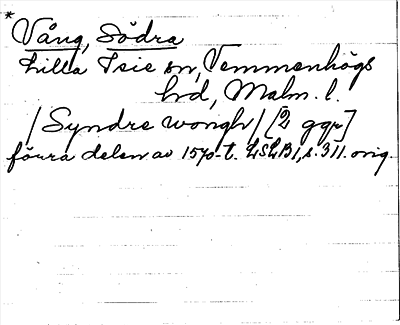 * Vång, Södra
Lilla Isie sn, Vemmenhögs
hd, Malm. l.
/Syndre wongh/ [2 ggr]
förra delen av 1570-t. LSLB1, s. 311. orig.